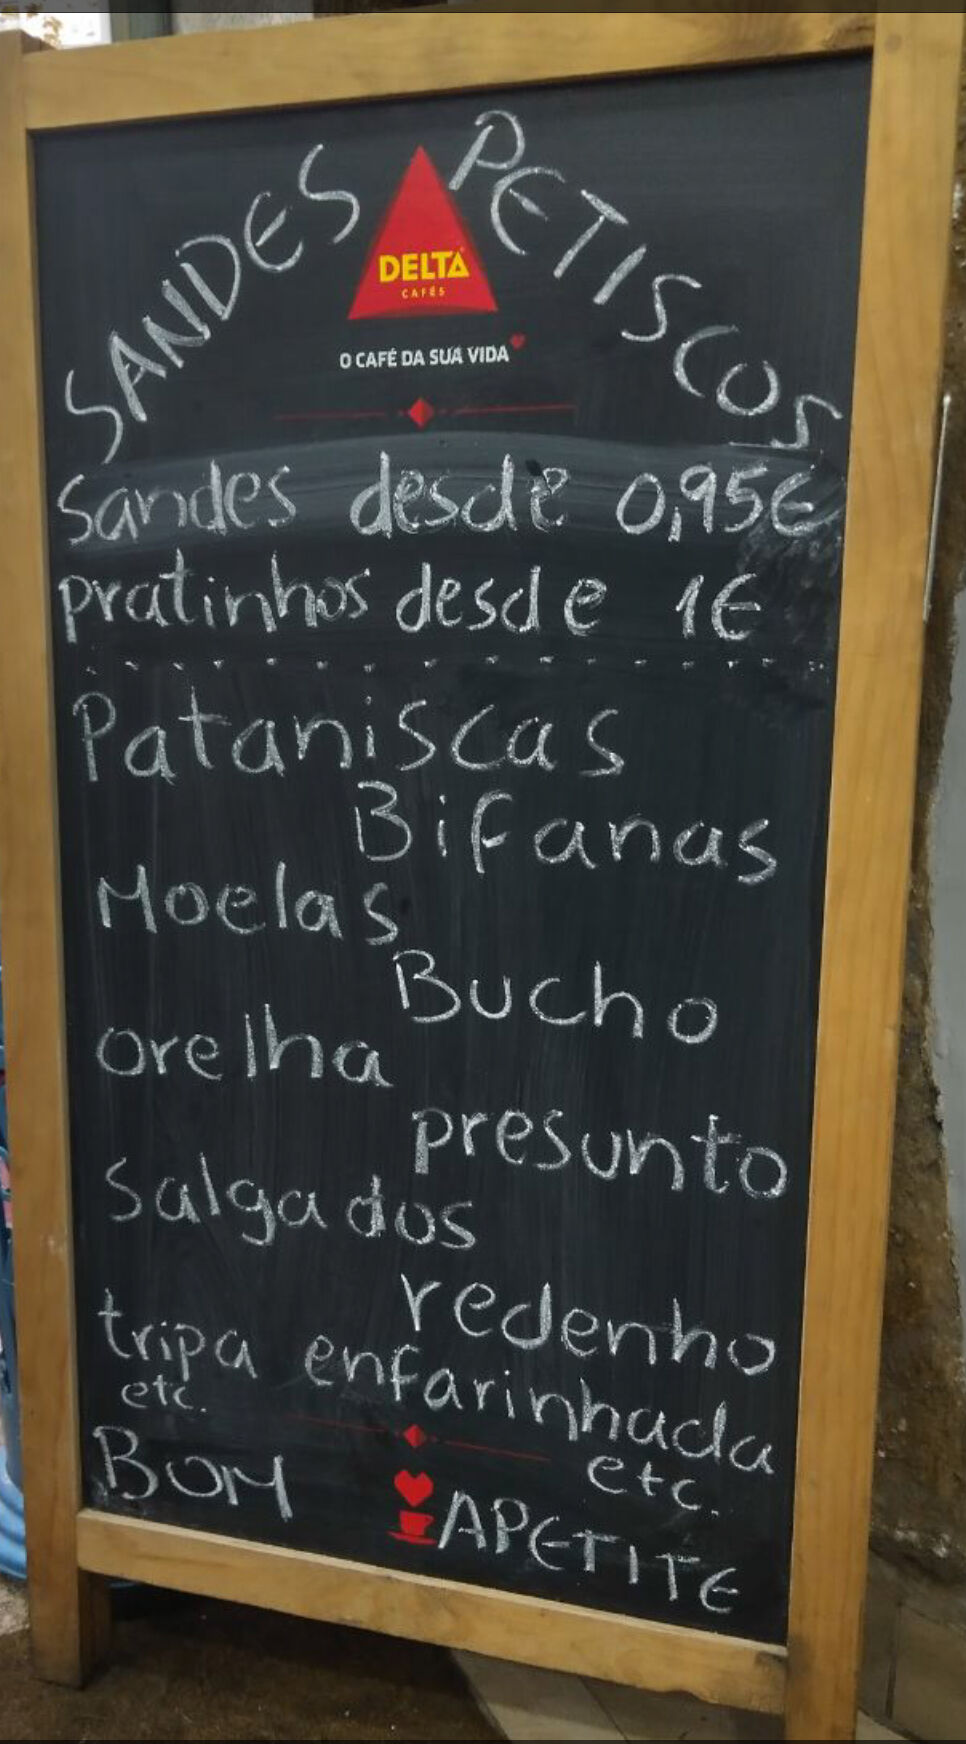 SANDES PETISCOS
DELTA
CAFÉS
O CAFÉ DA SUA VIDA
Sandes desde 0,95€
pratinhos desde 1€
Pataniscas
Bifanas
Moelas
Bucho
orelha
presunto
Salgados
redenho
tripa enfarinhada
etc.
etc.
BOM APETITE